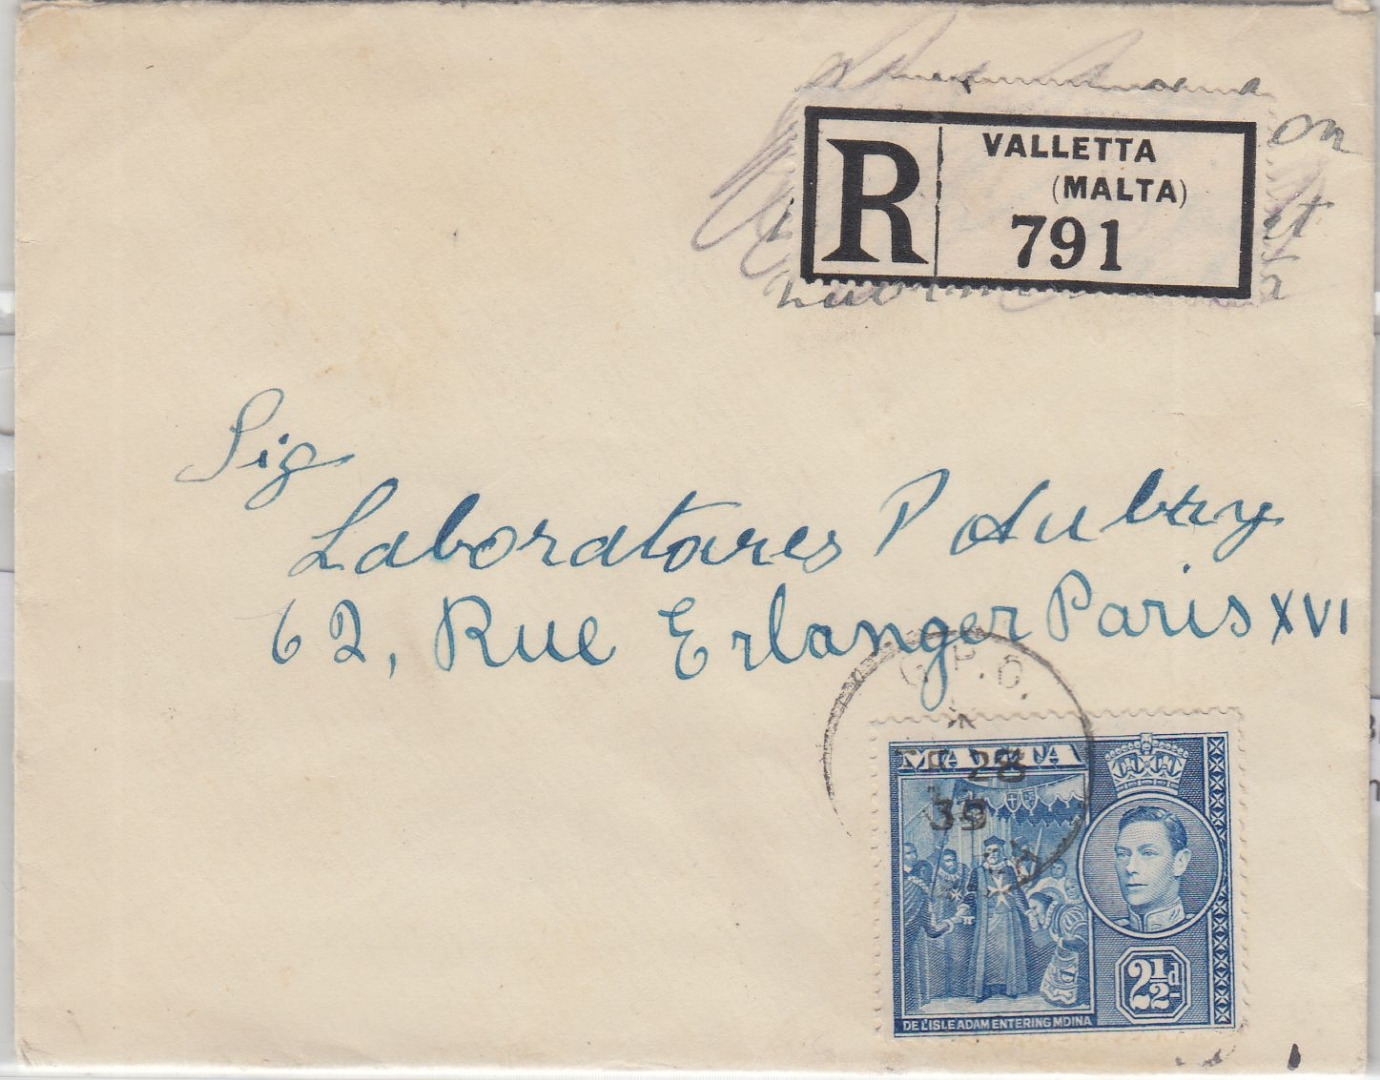 on
R VALLETTA
(MALTA)
791
Sig
Laboratares P Aubry
62, Rue Erlanger Paris XVI
G.P.O.
28
39
MALTA
2½d
DE L'ISLE ADAM ENTERING MDINA